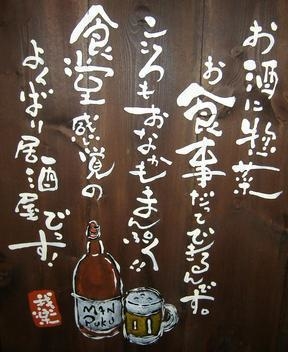 お酒に惣菜
お食事だってできるんです。
こころもおなかもまんぷく!!
食堂感覚の
よくばり居酒屋でっす!
MAN
PUKU
我楽